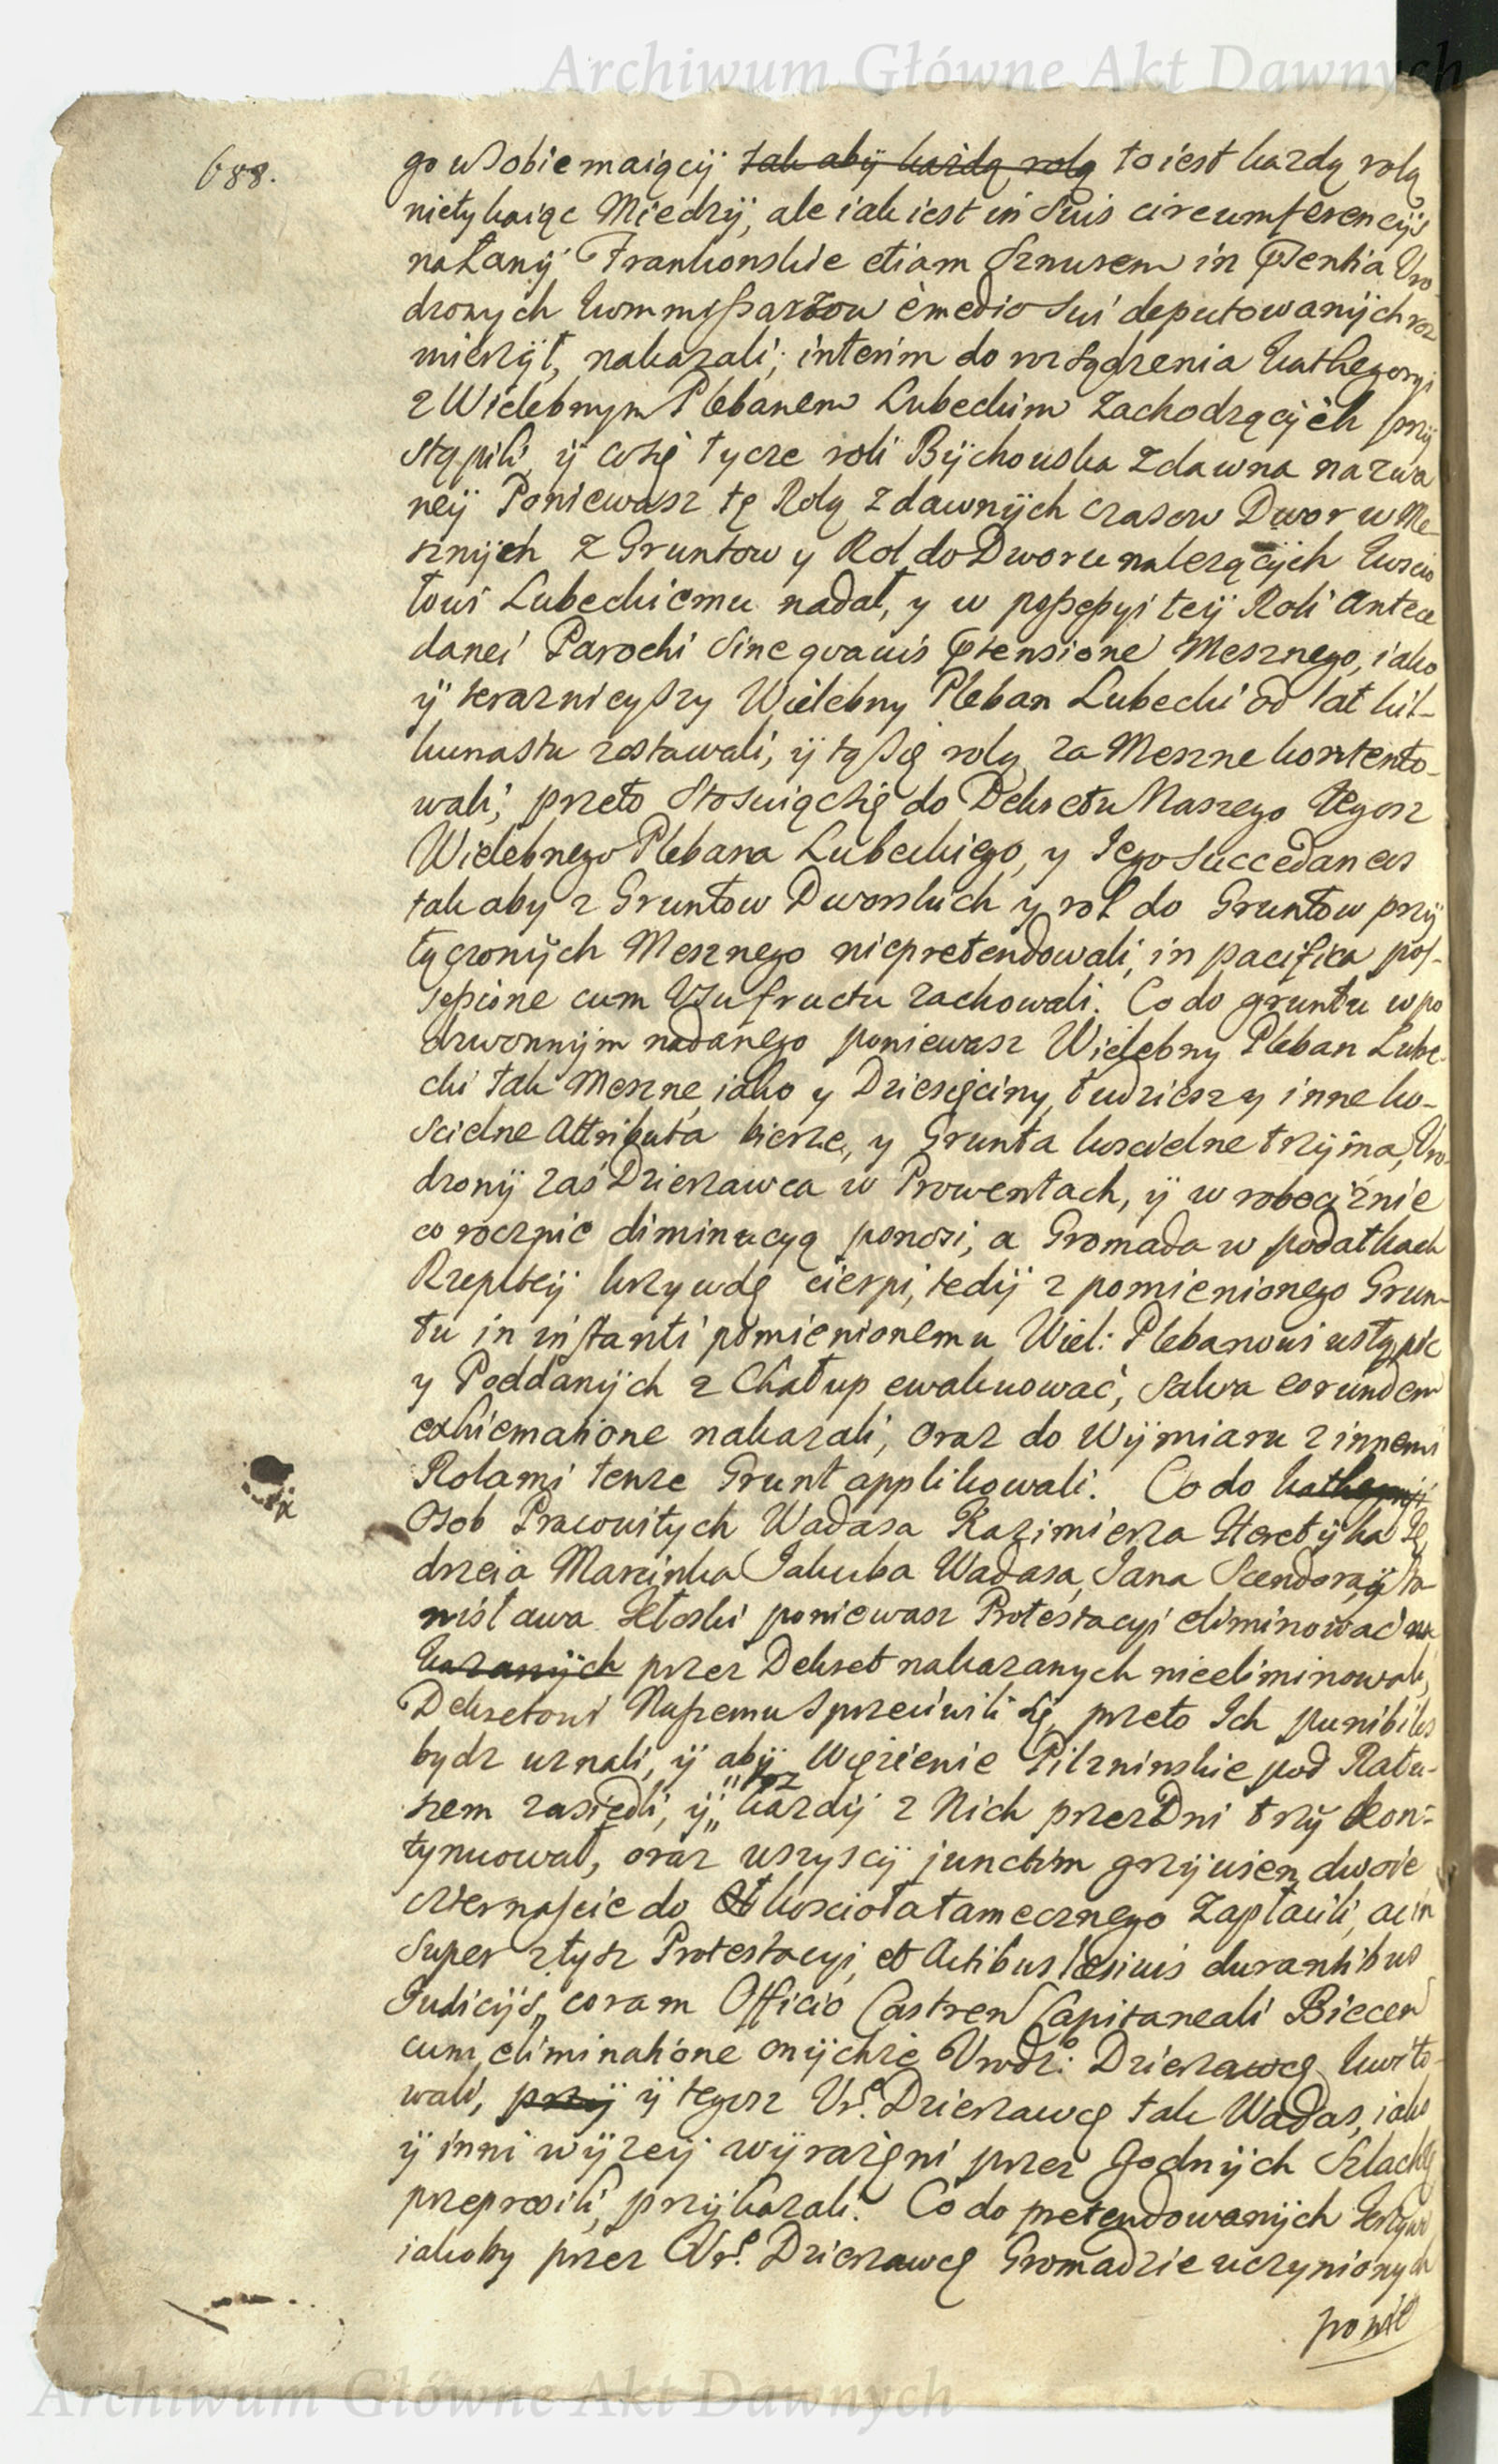 Archiwum Główne Akt Dawnych
688.
go w Sobie maiącÿ tak abÿ każdą rolą to iest każdą rolą
nietykaiąc Miedzÿ, ale iak iest in Suis circumferencÿs
na Łanÿ Frankonskie etiam Sznurem in Psentia Vro
dzonych kommissarzow e medio Sui deputowanÿch roz
mierzÿł, nakazali; interim do rozsądzenia kathegoryi
z Wielebnym Plebanem Lubeckim zachodzącÿch przÿ
stąpili, ÿ co się tycze roli Bÿchowska zdawna nazwa
neÿ Poniewasz tę Rolą z dawnÿch czasow Dwor w Me
sznÿch z Gruntow y Rol do Dworu należącÿch koscio
łowi Lubeckiemu nadał, y w possessyi teÿ Roli Antece
danei Parochi Sine quavis Ptensione Mesznego, iako
ÿ teraznieyszy Wielebny Pleban Lubecki od lat kil-
kunastu zostawali, ÿ tą się rolą za Meszne kontento-
wali; przeto Stosuiąc się do Dekretu Naszego tegosz
Wielebnego Plebana Lubeckiego, y Jego Succedaneos
tak aby z Gruntow Dworskich y rol do Gruntow przÿ
łączonÿch Mesznego niepretendowali, in pacifica pos-
sessione cum Vsufructu zachowali. Co do gruntu w po
dzwonnÿm nadanego poniewasz Wielebny Pleban Lube-
cki tak Meszne, iako y Dziesięciny, tudziesz y inne ko-
scielne Attributa bierze, y Grunta koscielne trzÿma, Vro-
dzonÿ zaś Dzierzawca w Prowentach, ÿ w robociźnie
co rocznie diminucyą ponosi, a Gromada w podatkach
Rzepltey krzywdę cierpi, tedÿ z pomienionego Grun-
tu in instanti pomienionemu Wiel: Plebanowi ustąpić
y Poddanÿch z Chałup ewakuować, Salva eorundem
exhiematione nakazali, oraz do Wÿmiaru z innemi
Rolami tenze Grunt applikowali. Co do kathegoryi
Osob Pracowitych Wadasa Kazimierza Heretÿka Ję
drzeia Marcinka Jakuba Wadasa, Jana Scendora, ÿ Sta
nisława Setoski poniewasz Protestacyi eliminować na
kazanÿch przez Dekret nakazanych nieeliminowali,
Dekretowi Naszemu sprzeciwili się, przeto Ich punibiles
bydz uznali, ÿ abÿ Więzienie Pilzninskie pod Ratu-
szem zasiedli, ÿ „toż„ kazdÿ z Nich przez Dni trzÿ kon-
tynuował, oraz wszyscÿ junctim grzÿwien dwoie
czternascie do kosciola tamecznego zapłacili, ac in
super z tych Protestacyi, et Actibus lesivis durantibus
Judicijs, coram Officio Castren Capitaneali Biecen
cum eliminatione onÿchże Vrodz: Dzierzawcę kwito-
wali, przÿ ÿ tegosz Vr. Dzierzawcę tak Wadas, iako
ÿ inni wÿzeÿ wÿrażeni przez Godnÿch Szlachtę
przeprosili, przÿkazali. Co do pretendowanÿch krzywd
iakoby przez Vr. Dzierzawcę Gromadzie uczynionych
ponie
Archiwum Główne Akt Dawnych